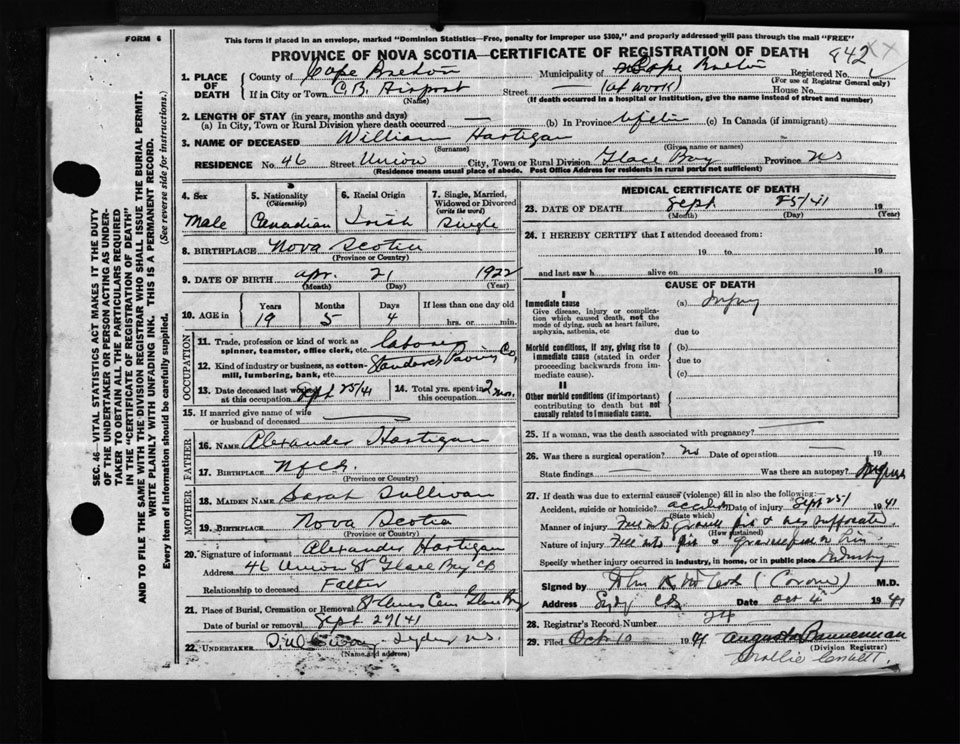 FORM 6
This form if placed in an envelope, marked "Dominion Statistics—Free, penalty for improper use $300," and properly addressed will pass through the mail "FREE"
PROVINCE OF NOVA SCOTIA—CERTIFICATE OF REGISTRATION OF DEATH
842 XX
1. PLACE OF DEATH
County of Cape Breton Municipality of Cape Breton Registered No.
(For use of Registrar General only)
If in City or Town C.B. Airport Street — (at work) House No.
(Name) (If death occurred in a hospital or institution, give the name instead of street and number)
2. LENGTH OF STAY (in years, months and days)
(a) In City, Town or Rural Division where death occurred — (b) In Province life (c) In Canada (if immigrant)
3. NAME OF DECEASED William Hartigan
(Surname) (Given name or names)
RESIDENCE No. 46 Street Union City, Town or Rural Division Glace Bay Province NS
(Residence means usual place of abode. Post Office Address for residents in rural parts not sufficient)
4. Sex
Male
5. Nationality
(Citizenship)
Canadian
6. Racial Origin
Irish
7. Single, Married, Widowed or Divorced
(write the word)
Single
8. BIRTHPLACE Nova Scotia
(Province or Country)
9. DATE OF BIRTH Apr. 21 1922
(Month) (Day) (Year)
10. AGE in
Years Months Days If less than one day old
19 5 4 hrs. or min.
OCCUPATION
11. Trade, profession or kind of work as spinner, teamster, office clerk, etc. Laborer
12. Kind of industry or business, as cotton-mill, lumbering, bank, etc. Standard Paving Co,
13. Date deceased last worked at this occupation Sept 25/41
14. Total yrs. spent in this occupation 2 mos.
15. If married give name of wife or husband of deceased
FATHER
16. NAME Alexander Hartigan
17. BIRTHPLACE Nfld.
(Province or Country)
MOTHER
18. MAIDEN NAME Sarah Sullivan
19. BIRTHPLACE Nova Scotia
(Province or Country)
20. Signature of informant Alexander Hartigan
Address 46 Union St Glace Bay CB
Relationship to deceased Father
21. Place of Burial, Cremation or Removal St Annes Cem Glace Bay
Date of burial or removal Sept 27/41
22. UNDERTAKER Sydney N.S.
MEDICAL CERTIFICATE OF DEATH
23. DATE OF DEATH Sept 25/41 19
(Month) (Day) (Year)
24. I HEREBY CERTIFY that I attended deceased from:
19 to 19
and last saw h alive on 19
CAUSE OF DEATH
I
Immediate cause (a) Injury
Give disease, injury or complication which caused death, not the mode of dying, such as heart failure, asphyxia, asthenia, etc
due to
Morbid conditions, if any, giving rise to immediate cause (stated in order proceeding backwards from immediate cause).
(b)
due to
(c)
II
Other morbid conditions (if important) contributing to death but not causally related to immediate cause.
25. If a woman, was the death associated with pregnancy?
26. Was there a surgical operation? no Date of operation 19
State findings Was there an autopsy?
27. If death was due to external causes (violence) fill in also the following:—
Accident, suicide or homicide? accident Date of injury Sept 25/ 1941
(State which)
Manner of injury Fell into gravel pit & was suffocated.
(How sustained)
Nature of injury Fell into pit & gravel on him
Specify whether injury occurred in industry, in home, or in public place Industry
Signed by (Coroner) M.D.
Address Sydney CB Date Oct 4 1941
28. Registrar's Record Number 24
29. Filed Oct 10 1941 Augusta Bannerman
(Division Registrar)
SEC. 46—VITAL STATISTICS ACT MAKES IT THE DUTY
OF THE UNDERTAKER OR PERSON ACTING AS UNDER-
TAKER TO OBTAIN ALL THE PARTICULARS REQUIRED
IN THE "CERTIFICATE OF REGISTRATION OF DEATH"
AND TO FILE THE SAME WITH THE DIVISION REGISTRAR WHO SHALL ISSUE THE BURIAL PERMIT.
WRITE PLAINLY WITH UNFADING INK. THIS IS A PERMANENT RECORD.
Every item of information should be carefully supplied. (See reverse side for instructions.)